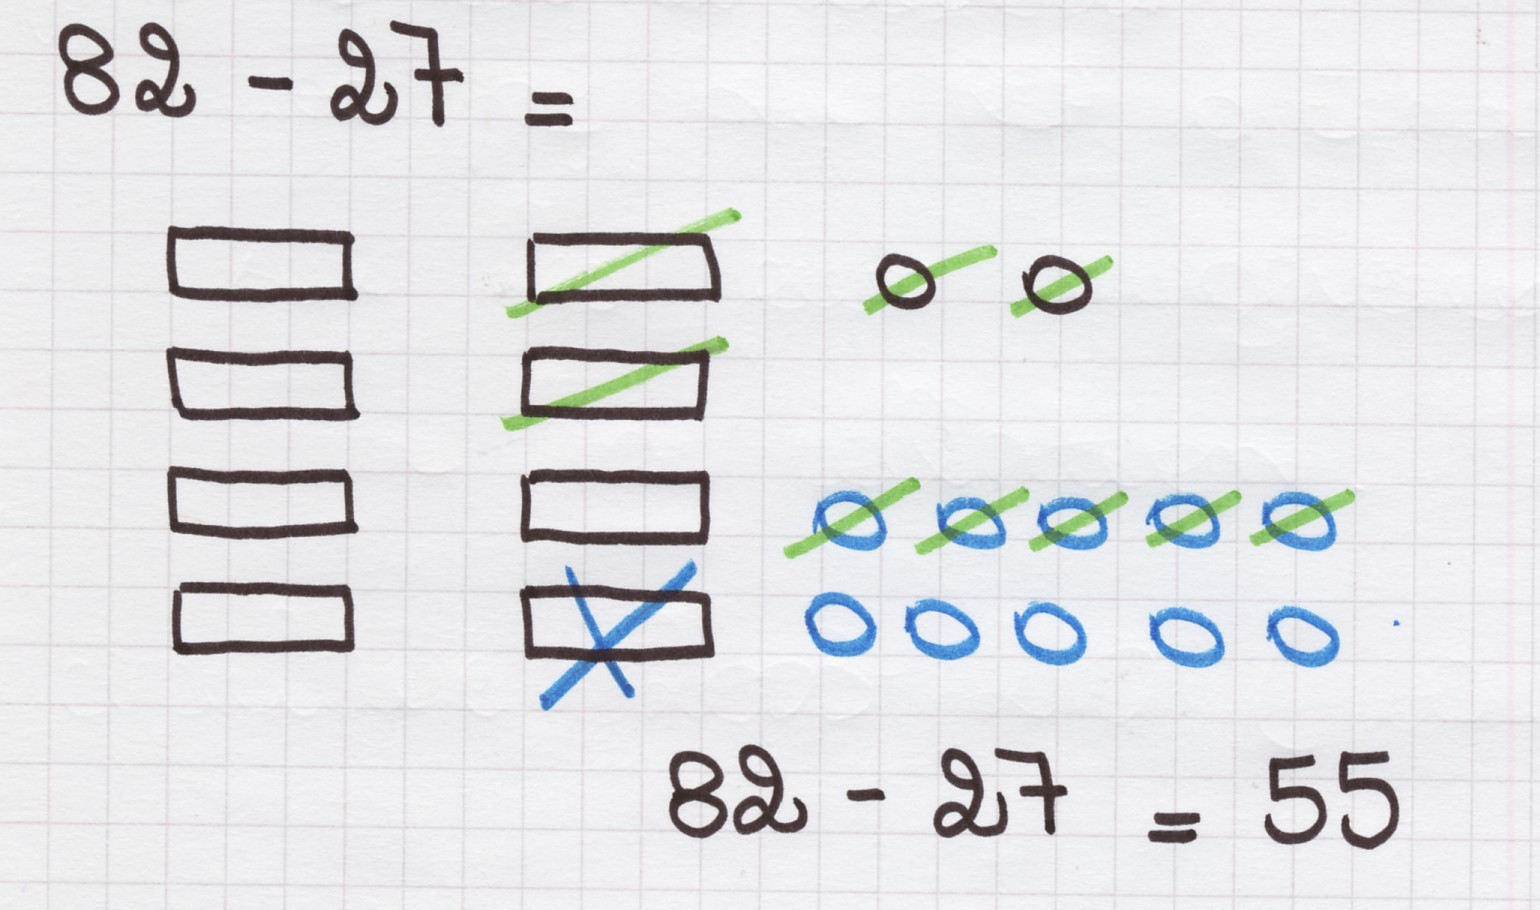 82 - 27 =
82 - 27 = 55